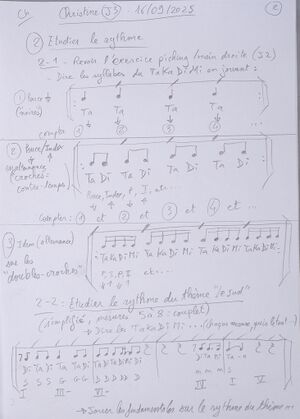 Christine (J3) - 16/09/2025
② Etudier le rythme
2-1 - Revoir l'exercice picking main droite (J2)
- Dire les syllabes du TaKaDiMi en jouant :
① Pouce
(noires)
Ta Ta Ta Ta
compter ① ② ③ ④
② Pouce/Index
en alternance
(croches
contre-temps)
Ta Di Ta Di Ta Di Ta Di
Pouce, Index, P, I, etc...
Compter : ① et ② et ③ et ④ et ...
③ Idem (alternance)
sur les
"doubles-croches"
TaKaDiMi TaKaDiMi TaKaDiMi TaKaDiMi
P, I, P, I etc...
2-2 - Etudier le rythme du thème "Le Sud"
(simplifié, mesures 5 à 8 = couplet)
→ Dire les TaKaDiMi... (chaque mesure, puis le tout...)
→ Jouer les fondamentales sur le rythme du thème